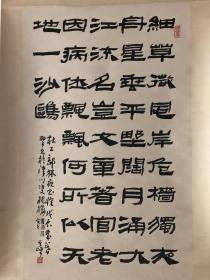 細草微風岸危檣獨夜
舟星垂平埜闊月涌大
江流名豈文章著官老
因病休飄飄何所似天
地一沙鷗
杜工部旅夜書懷